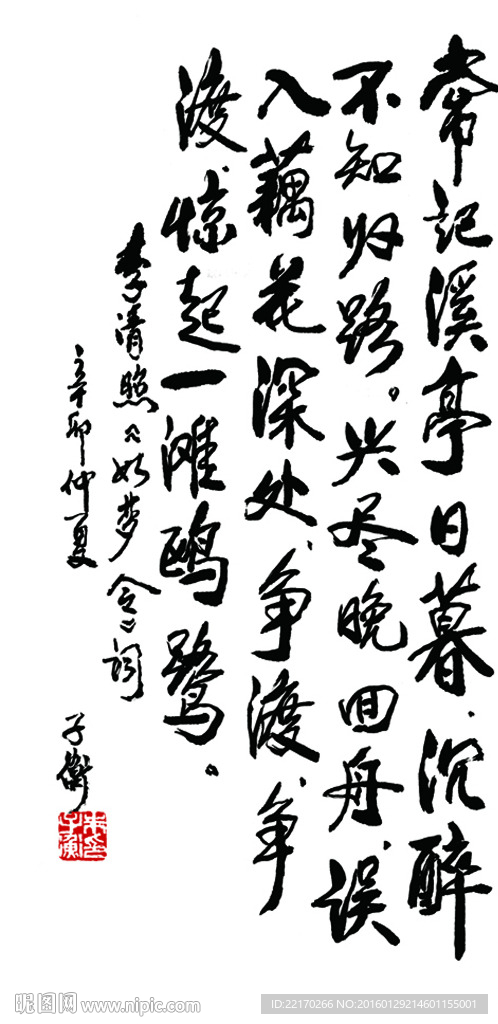 常记溪亭日暮、沉醉
不知归路。兴尽晚回舟、误
入藕花深处、争渡、争
渡、惊起一滩鸥鹭。
李清照《如梦令》词
辛卯仲夏
子衡
昵图网 www.nipic.com
ID:22170266 NO:20160129214601155001